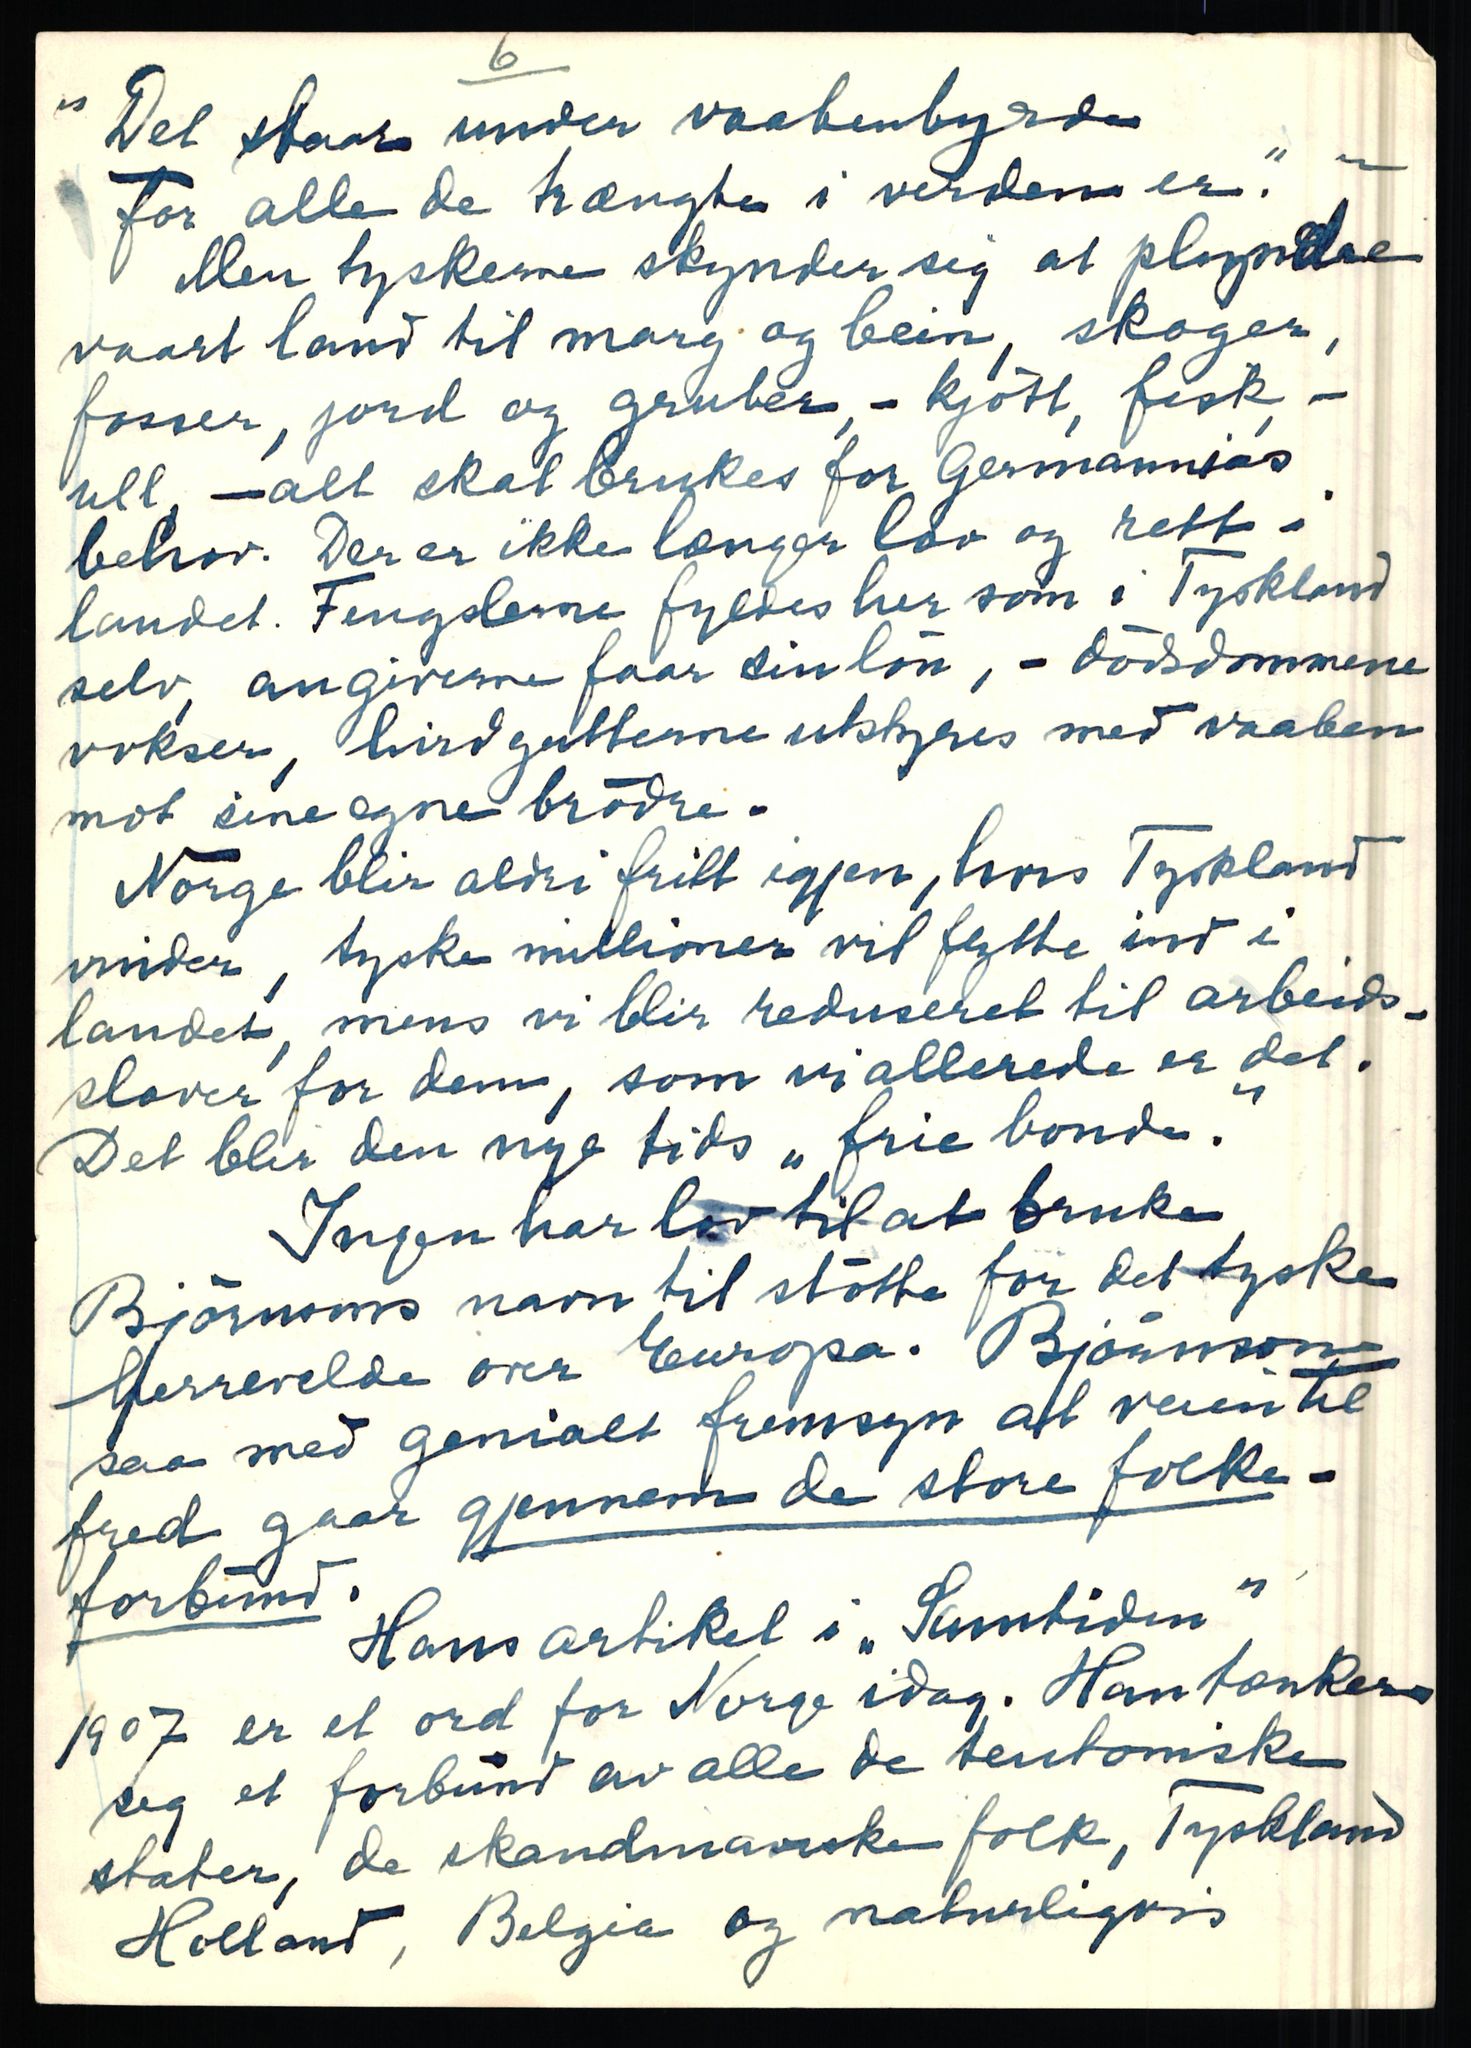 6
"Det staar under vaabenbyrde
For alle de trængte i verden er." –
Men tyskerne skynder sig at plyndre
vaart land til marg og bein, skoger,
fosser, jord og gruber, – kjött, fisk, –
ull, – alt skal brukes for Germannias
behov. Der er ikke længer lov og rett i
landet. Fengslerne fyldes her som i Tyskland
selv, angiverne faar sin lön, – dödsdommene
vokser, hirdgutterne utstyres med vaaben
mot sine egne brödre.
Norge blir aldri fritt igjen, hvis Tyskland
vinder, tyske millioner vil flytte ind i
landet, mens vi blir reduseret til arbeids-
slaver for dem, som vi allerede er det.
Det blir den nye tids „frie bonde."
Ingen har lov til at bruke
Björnsons navn til stötte for det tyske
herrevelde over Europa. Björnson
saa med genialt fremsyn at veien til
fred gaar gjennem de store folke-
forbund.
Hans artikel i „Samtiden"
1907 er et ord for Norge idag. Han tænker
seg et forbund av alle de teutoniske
stater, de skandinaviske folk, Tyskland
Holland, Belgia og naturligvis